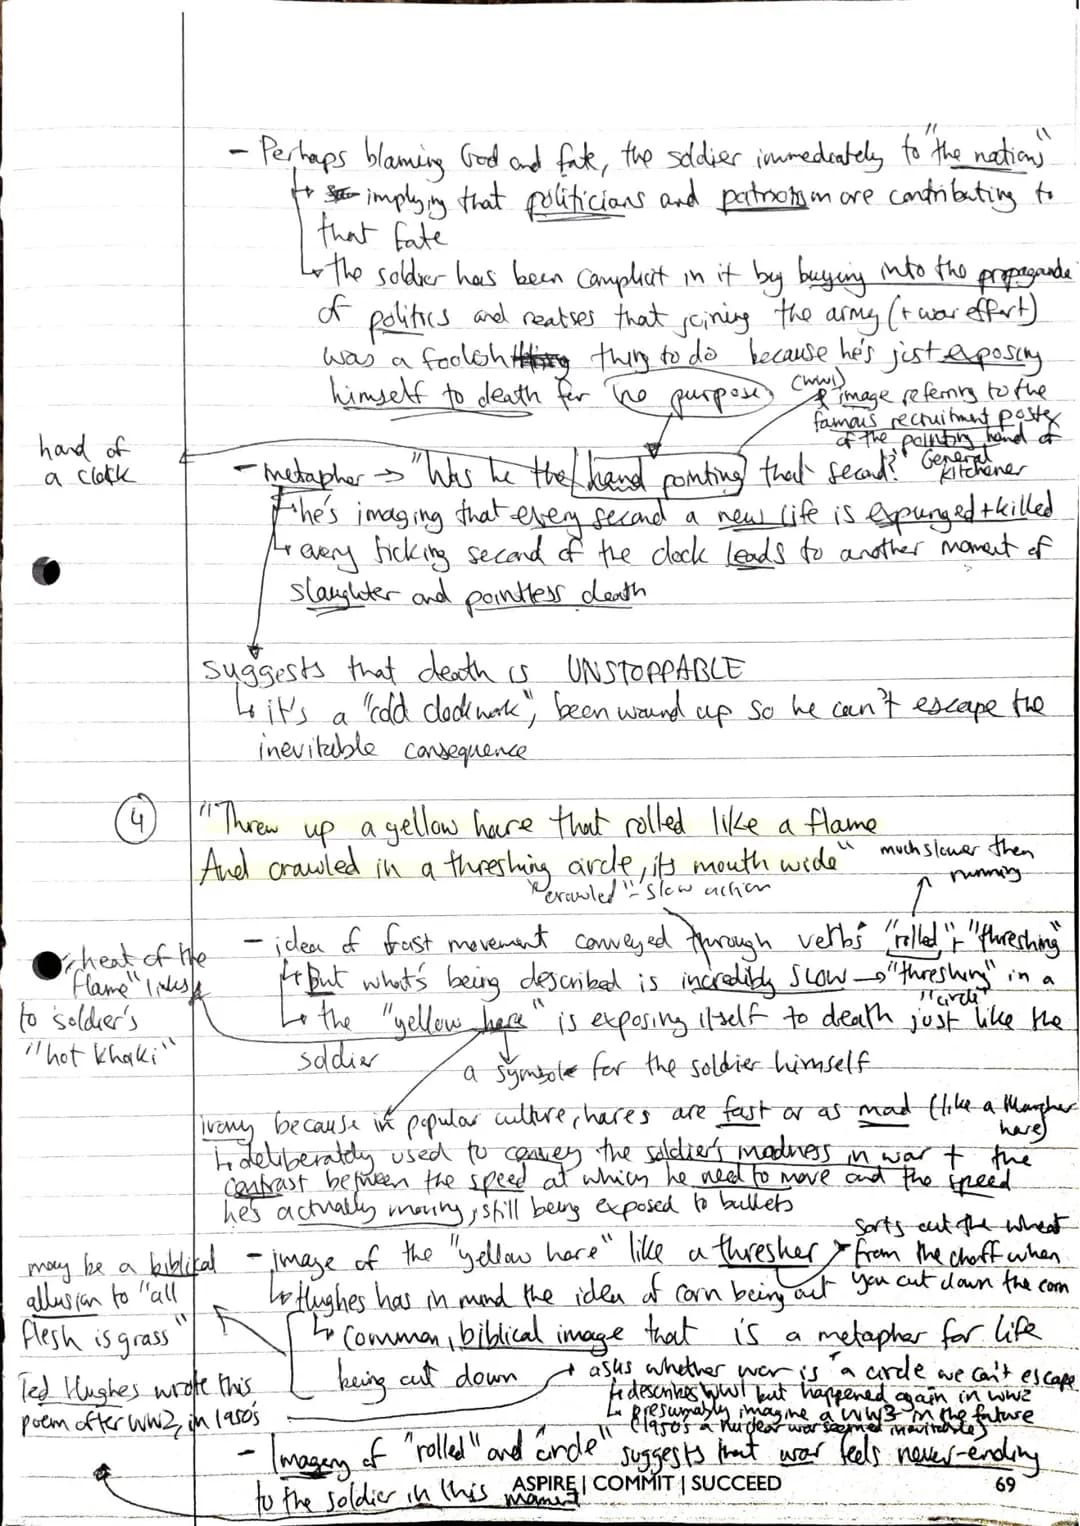 - Perhaps blaming God and fate, the soldier immediately to "the nations"
↳ implying that politicians and patriotism are contributing to
that fate
↳ the soldier has been complicit in it by buying into the propaganda
of politics and realises that joining the army (+ war effort)
was a foolish thing to do because he's just exposing
himself to death for no purpose
(WW1)
image referring to the
famous recruitment poster
of the pointing hand of
General
Kitchener
hand of
a clock
- metaphor → "Was he the hand pointing that second?"
↳ he's imaging that every second a new life is expunged + killed
↳ every ticking second of the clock leads to another moment of
slaughter and pointless death
suggests that death is UNSTOPPABLE
↳ it's a "cold clockwork", been wound up so he can't escape the
inevitable consequence
4
"Threw up a yellow hare that rolled like a flame
And crawled in a threshing circle, its mouth wide"
much slower then
running
"crawled" - slow action
- idea of fast movement conveyed through verbs "rolled" + "threshing"
↳ But what's being described is incredibly SLOW → "threshing" in a
"circle"
↳ the "yellow hare" is exposing itself to death just like the
soldier
a symbol for the soldier himself
heat of the
"flame" links
to soldier's
"hot khaki"
irony because in popular culture, hares are fast or as mad (like a Marcher
hare)
↳ deliberately used to convey the soldier's madness in war + the
contrast between the speed at which he need to move and the speed
he's actually moving, still being exposed to bullets
- image of the "yellow hare" like a thresher
sorts out the wheat
from the chaff when
you cut down the corn
↳ Hughes has in mind the idea of corn being cut
↳ common, biblical image that is a metaphor for life
being cut down
may be a biblical
allusion to "all
flesh is grass"
→ asks whether war is a circle we can't escape
↳ describes WW1 but happened again in WW2
↳ presumably imagine a WW3 in the future
(1950's a nuclear war seemed inevitable)
Ted Hughes wrote this
poem after WW2, in 1950's
- Imagery of "rolled" and "circle" suggests that war feels never-ending
to the soldier in this moment
ASPIRE | COMMIT | SUCCEED
69